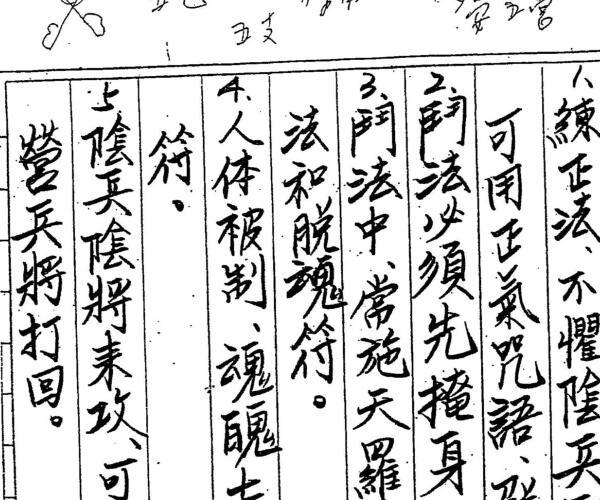 五支
安五營
1、練正法、不懼陰兵
可用正氣咒語、
2、鬥法必須先掩身
3、鬥法中、常施天羅
法和脫魂符。
4、人体被制、魂魄
符。
5、陰兵陰將来攻、可
營兵將打回。